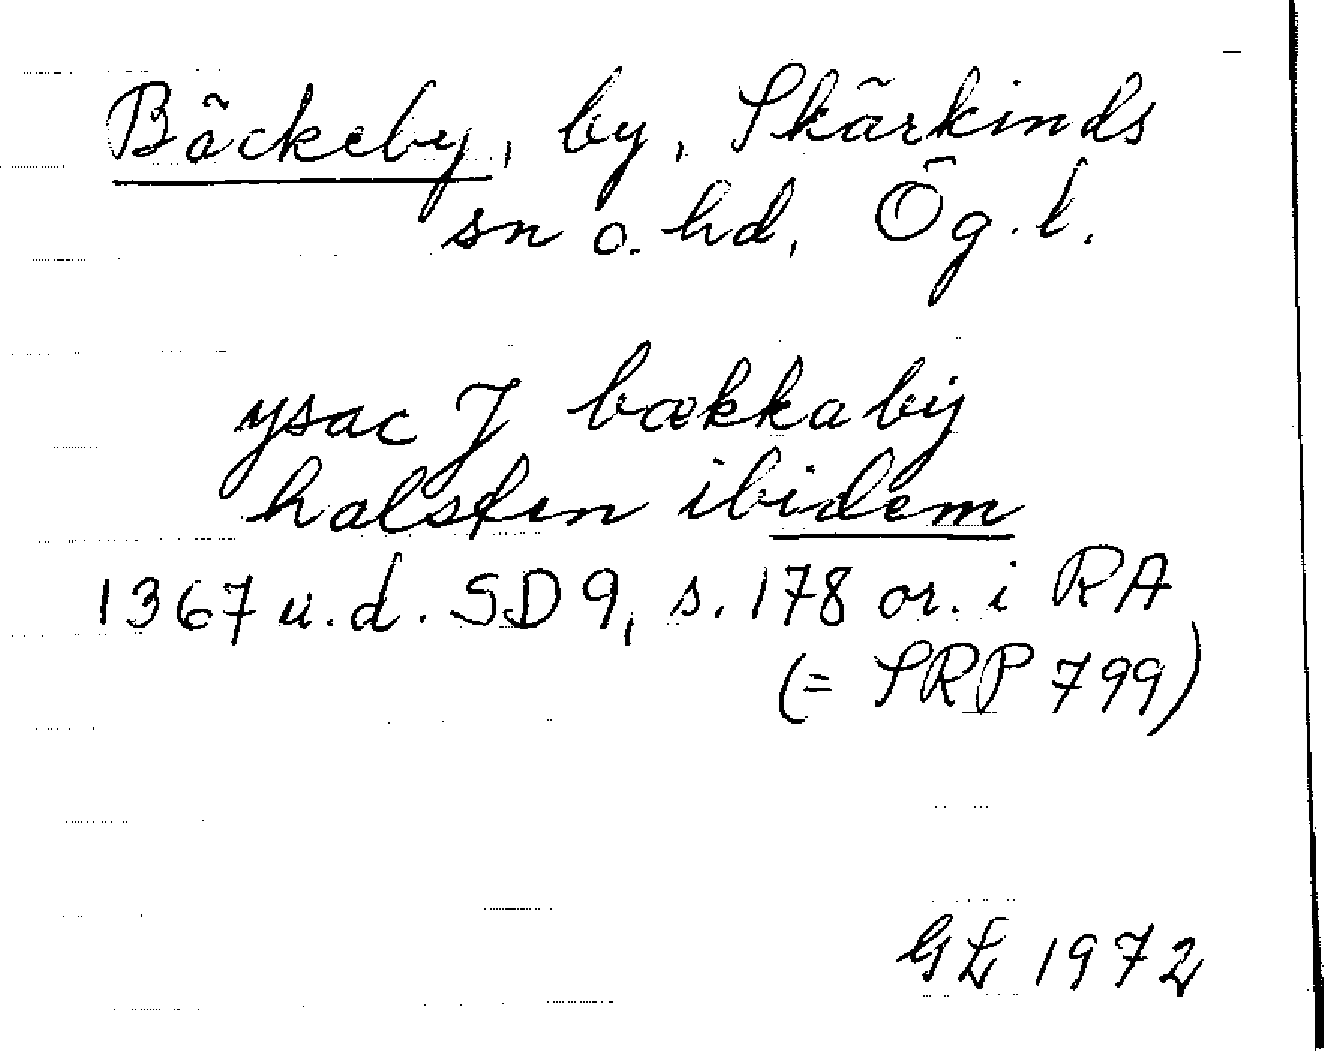 Bäckeby, by, Skärkinds
sn o. hd, Ög. l.
ysac J bækkabij
halsten ibidem
1367 u.d. SD 9, s. 178 or. i RA
(= SRP 799)
GL 1972